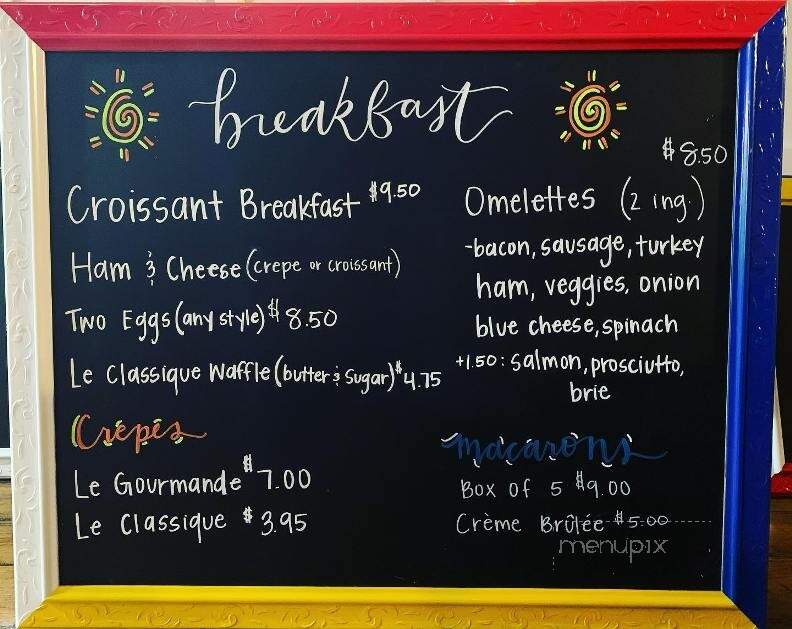 breakfast
Croissant Breakfast $9.50
Ham & Cheese (crepe or croissant)
Two Eggs (any style) $8.50
Le Classique Waffle (butter & Sugar) $4.75
Crêpes
Le Gourmande $7.00
Le Classique $3.95
$8.50
Omelettes (2 ing.)
-bacon, sausage, turkey
ham, veggies, onion
blue cheese, spinach
+1.50: salmon, prosciutto,
brie
macarons
Box of 5 $9.00
Crème Brûlée $5.00
menupix